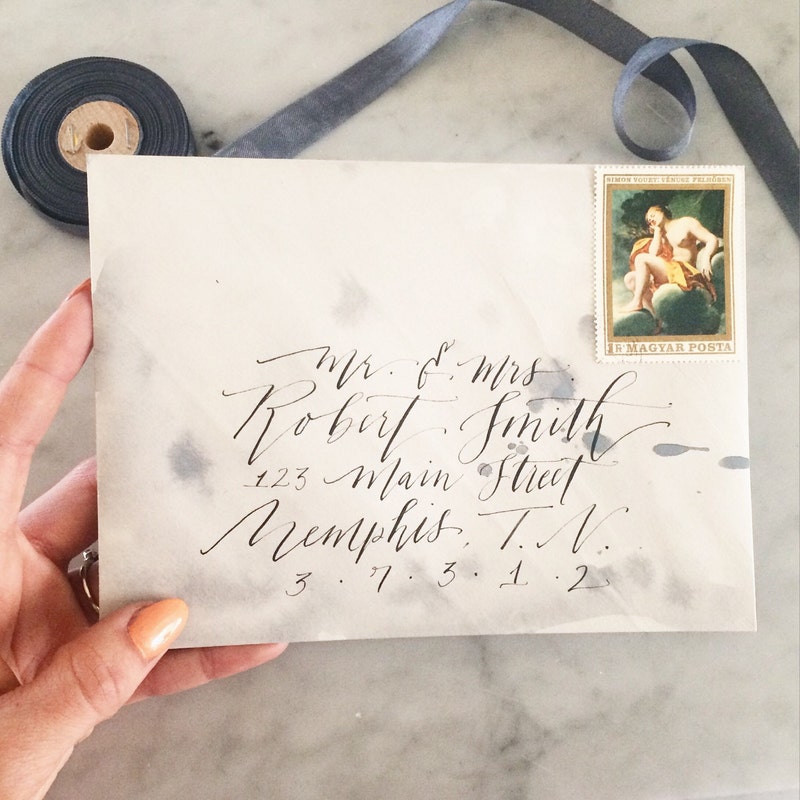 SIMON VOUET: VÉNUSZ FELHŐBEN
1Ft MAGYAR POSTA
Mr. & Mrs.
Robert Smith
123 Main Street
Memphis, T. N.
3 · 7 · 3 · 1 · 2